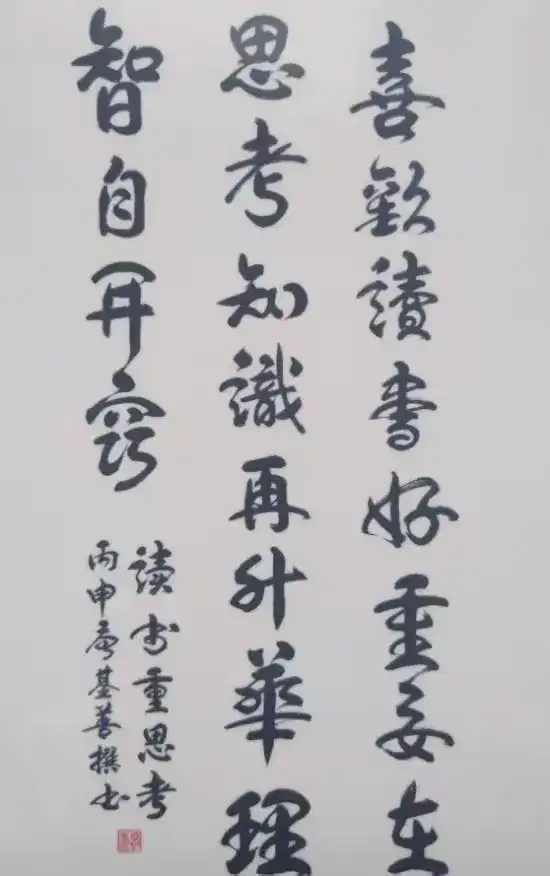 喜歡讀書好重要在
思考知識再升華理
智自開竅
讀書重思考
丙申 基善撰書